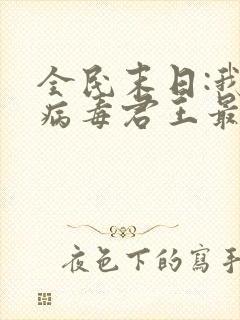 全民末日:我
病毒君王最
夜色下的寫手